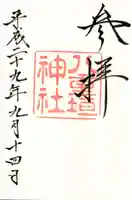 参拝
八重垣神社
平成二十九年九月十四日